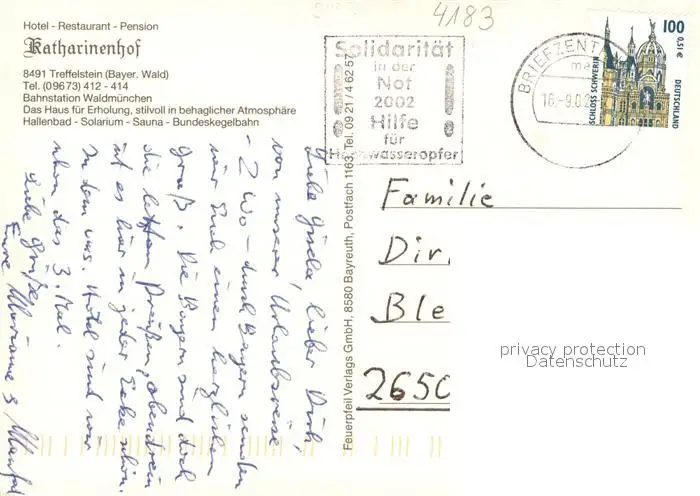 4183
Hotel - Restaurant - Pension
Katharinenhof
8491 Treffelstein (Bayer. Wald)
Tel. (09673) 412 - 414
Bahnstation Waldmünchen
Das Haus für Erholung, stilvoll in behaglicher Atmosphäre
Hallenbad - Solarium - Sauna - Bundeskegelbahn
Solidarität
in der
Not
2002
Hilfe
für
Hochwasseropfer
BRIEFZENT
16.-9.0
100
0,51 €
DEUTSCHLAND
SCHLOSS SCHWERIN
Feuerpfeil Verlags GmbH, 8580 Bayreuth, Postfach 1163, Tel. 09 21 / 4 62 57
Liebe Gisela, lieber Dirk,
von unserer Urlaubsreise,
- 2 Wo - durch Bayern senden
wir Euch einen herzlichen
Gruß. Die Bayern sind doch
die letzten Preußen, obendrein
ist es hier in jeder Ecke schön.
In dem Hotel sind wir
schon das 3. Mal.
Liebe Grüße
Eure
Familie
Dir
Ble
2650
privacy protection
Datenschutz